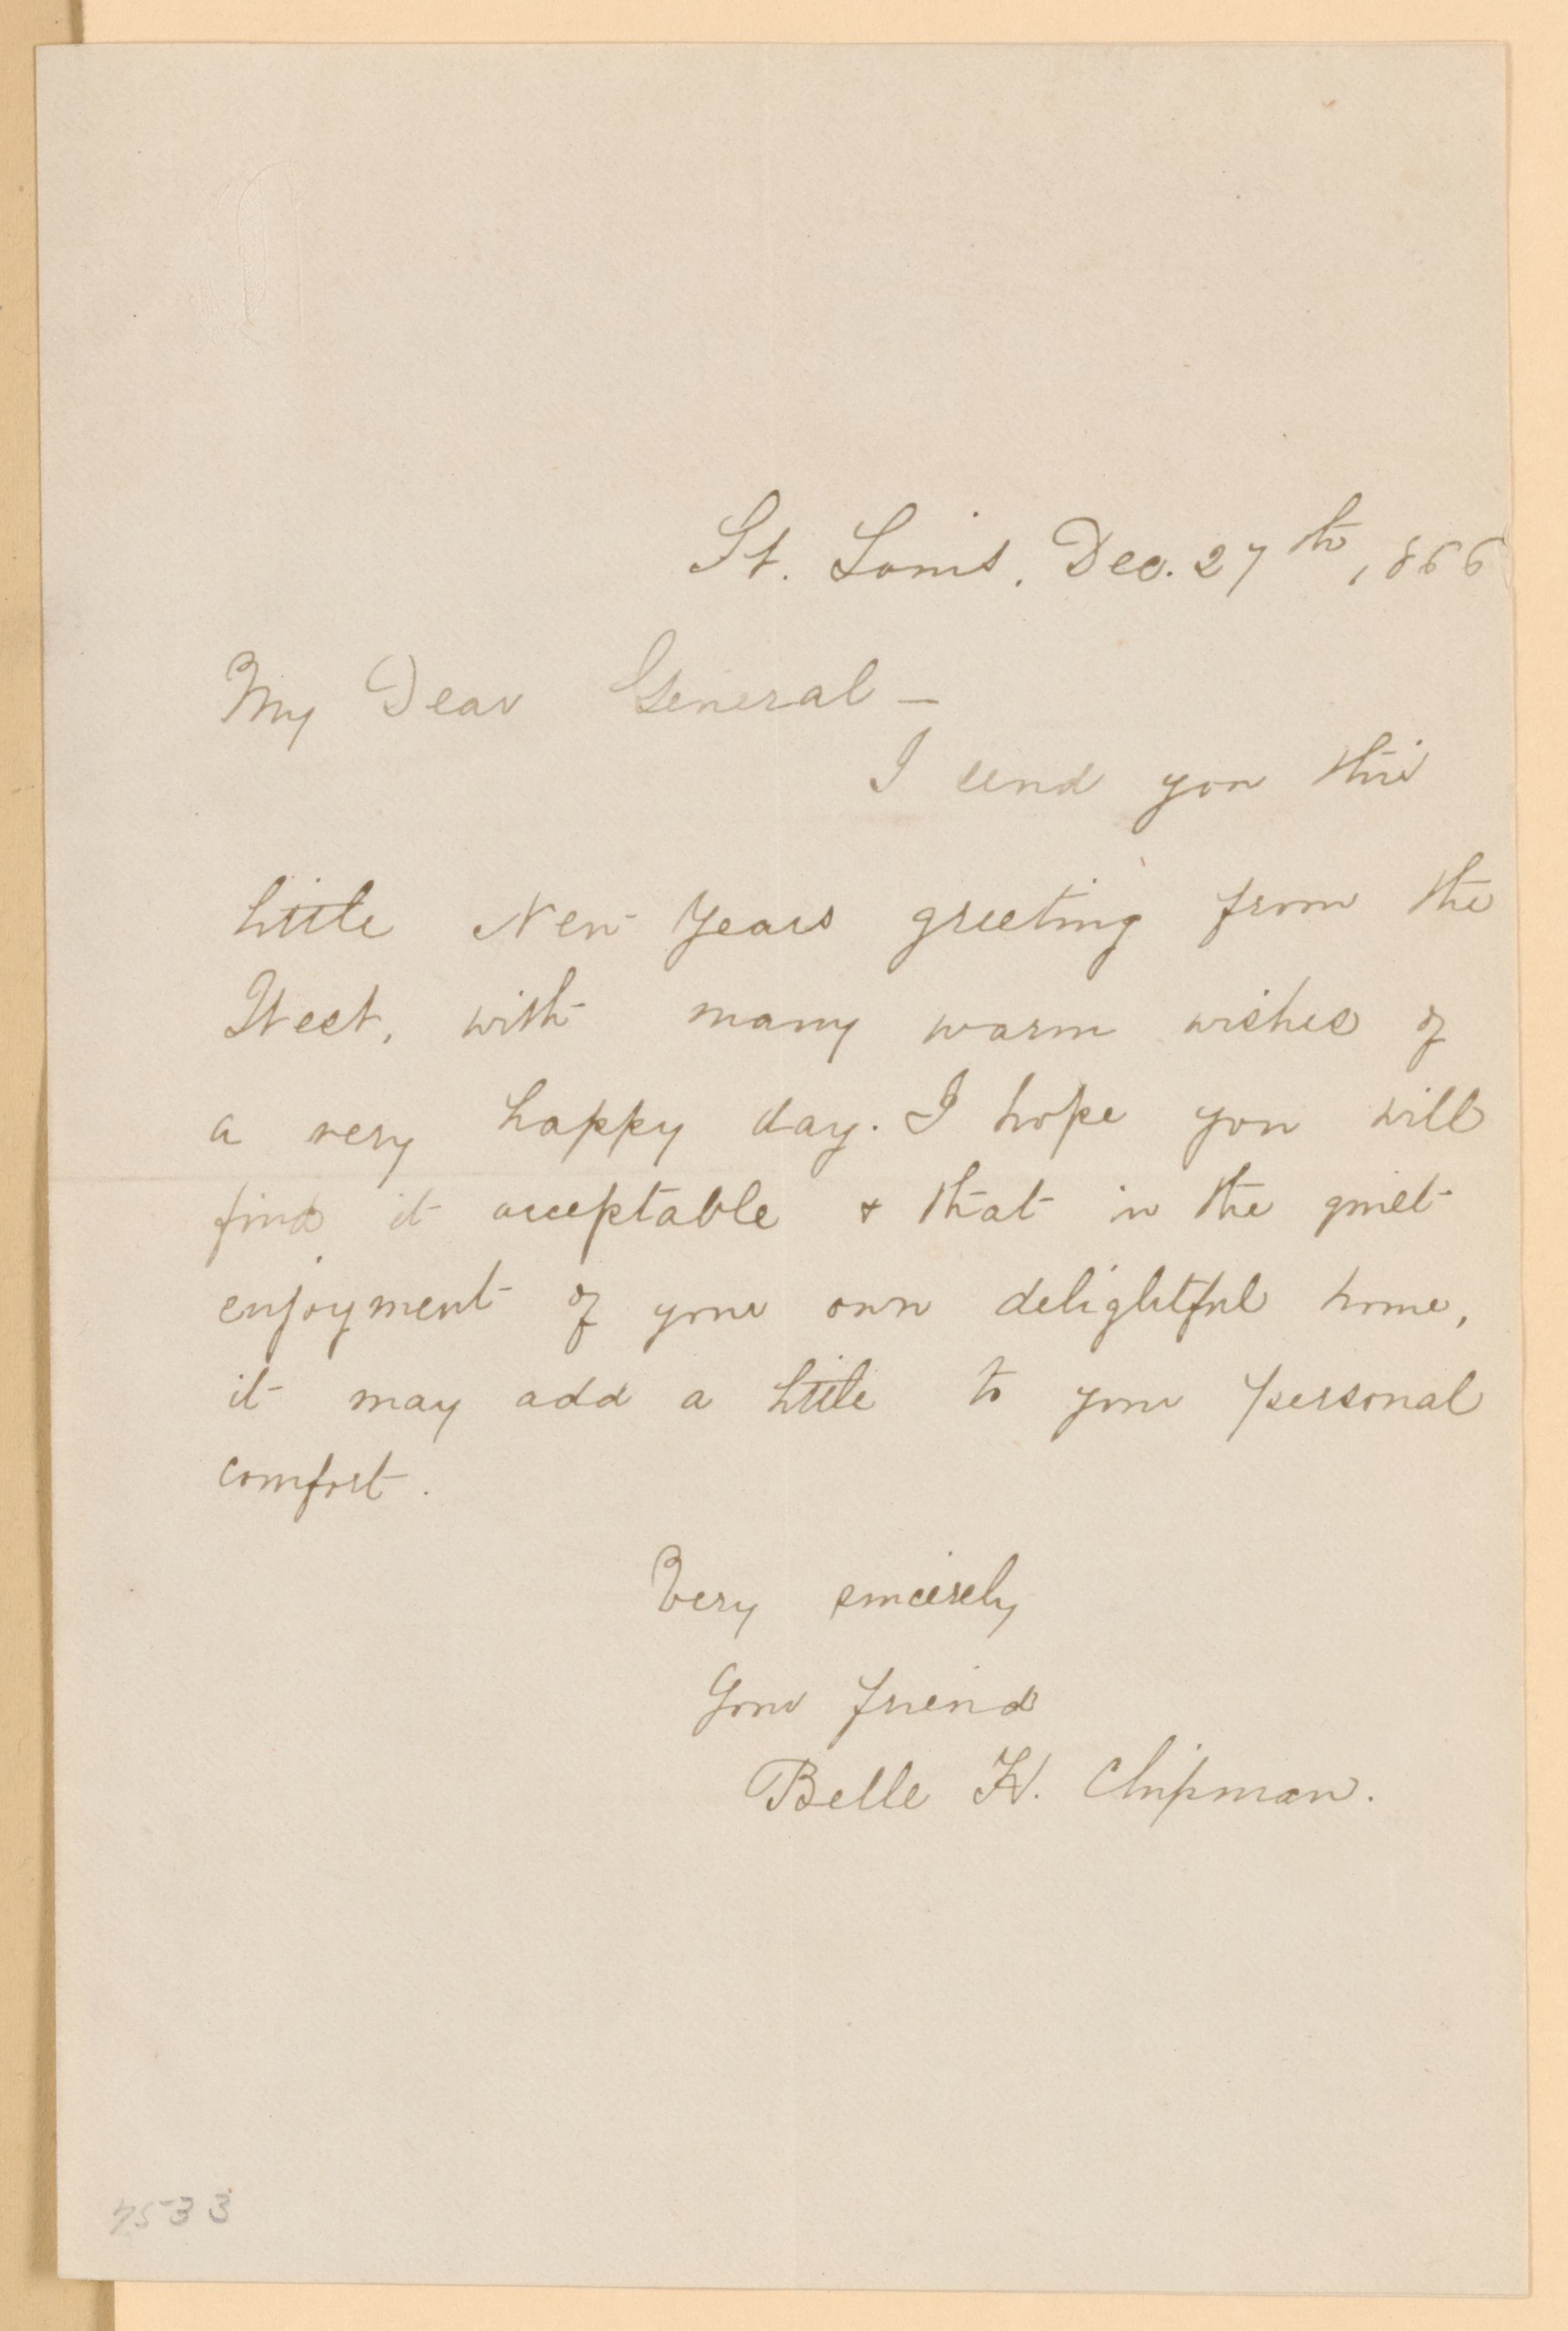 St. Louis, Dec. 27th, 1866
My Dear General —
I send you this
little New Years greeting from the
West, with many warm wishes of
a very happy day. I hope you will
find it acceptable & that in the quiet
enjoyment of your own delightful home,
it may add a little to your personal
comfort.
Very sincerely
Your friend
Belle H. Chipman.
7533